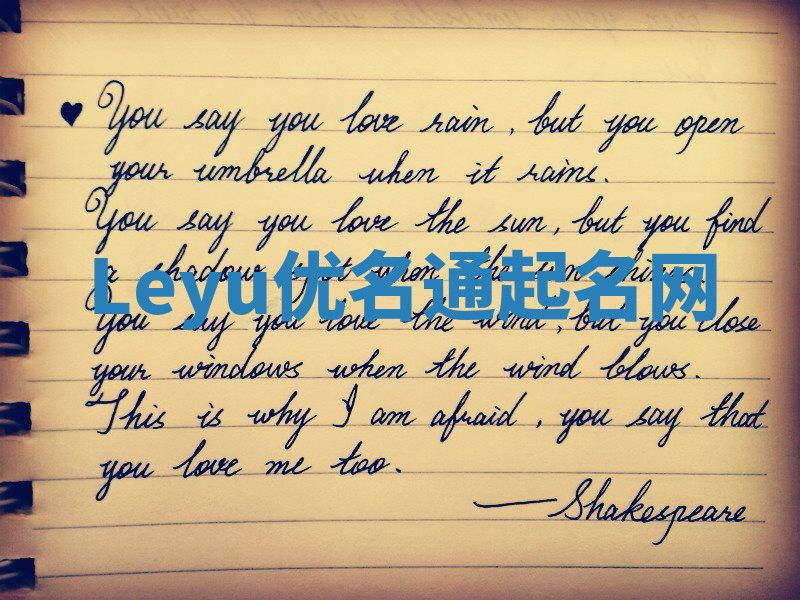 ♥ You say you love rain, but you open
your umbrella when it rains.
You say you love the sun, but you find
a shadow spot when the sun shines.
Leyu优名通起名网
You say you love the wind, but you close
your windows when the wind blows.
This is why I am afraid, you say that
you love me too.
—Shakespeare